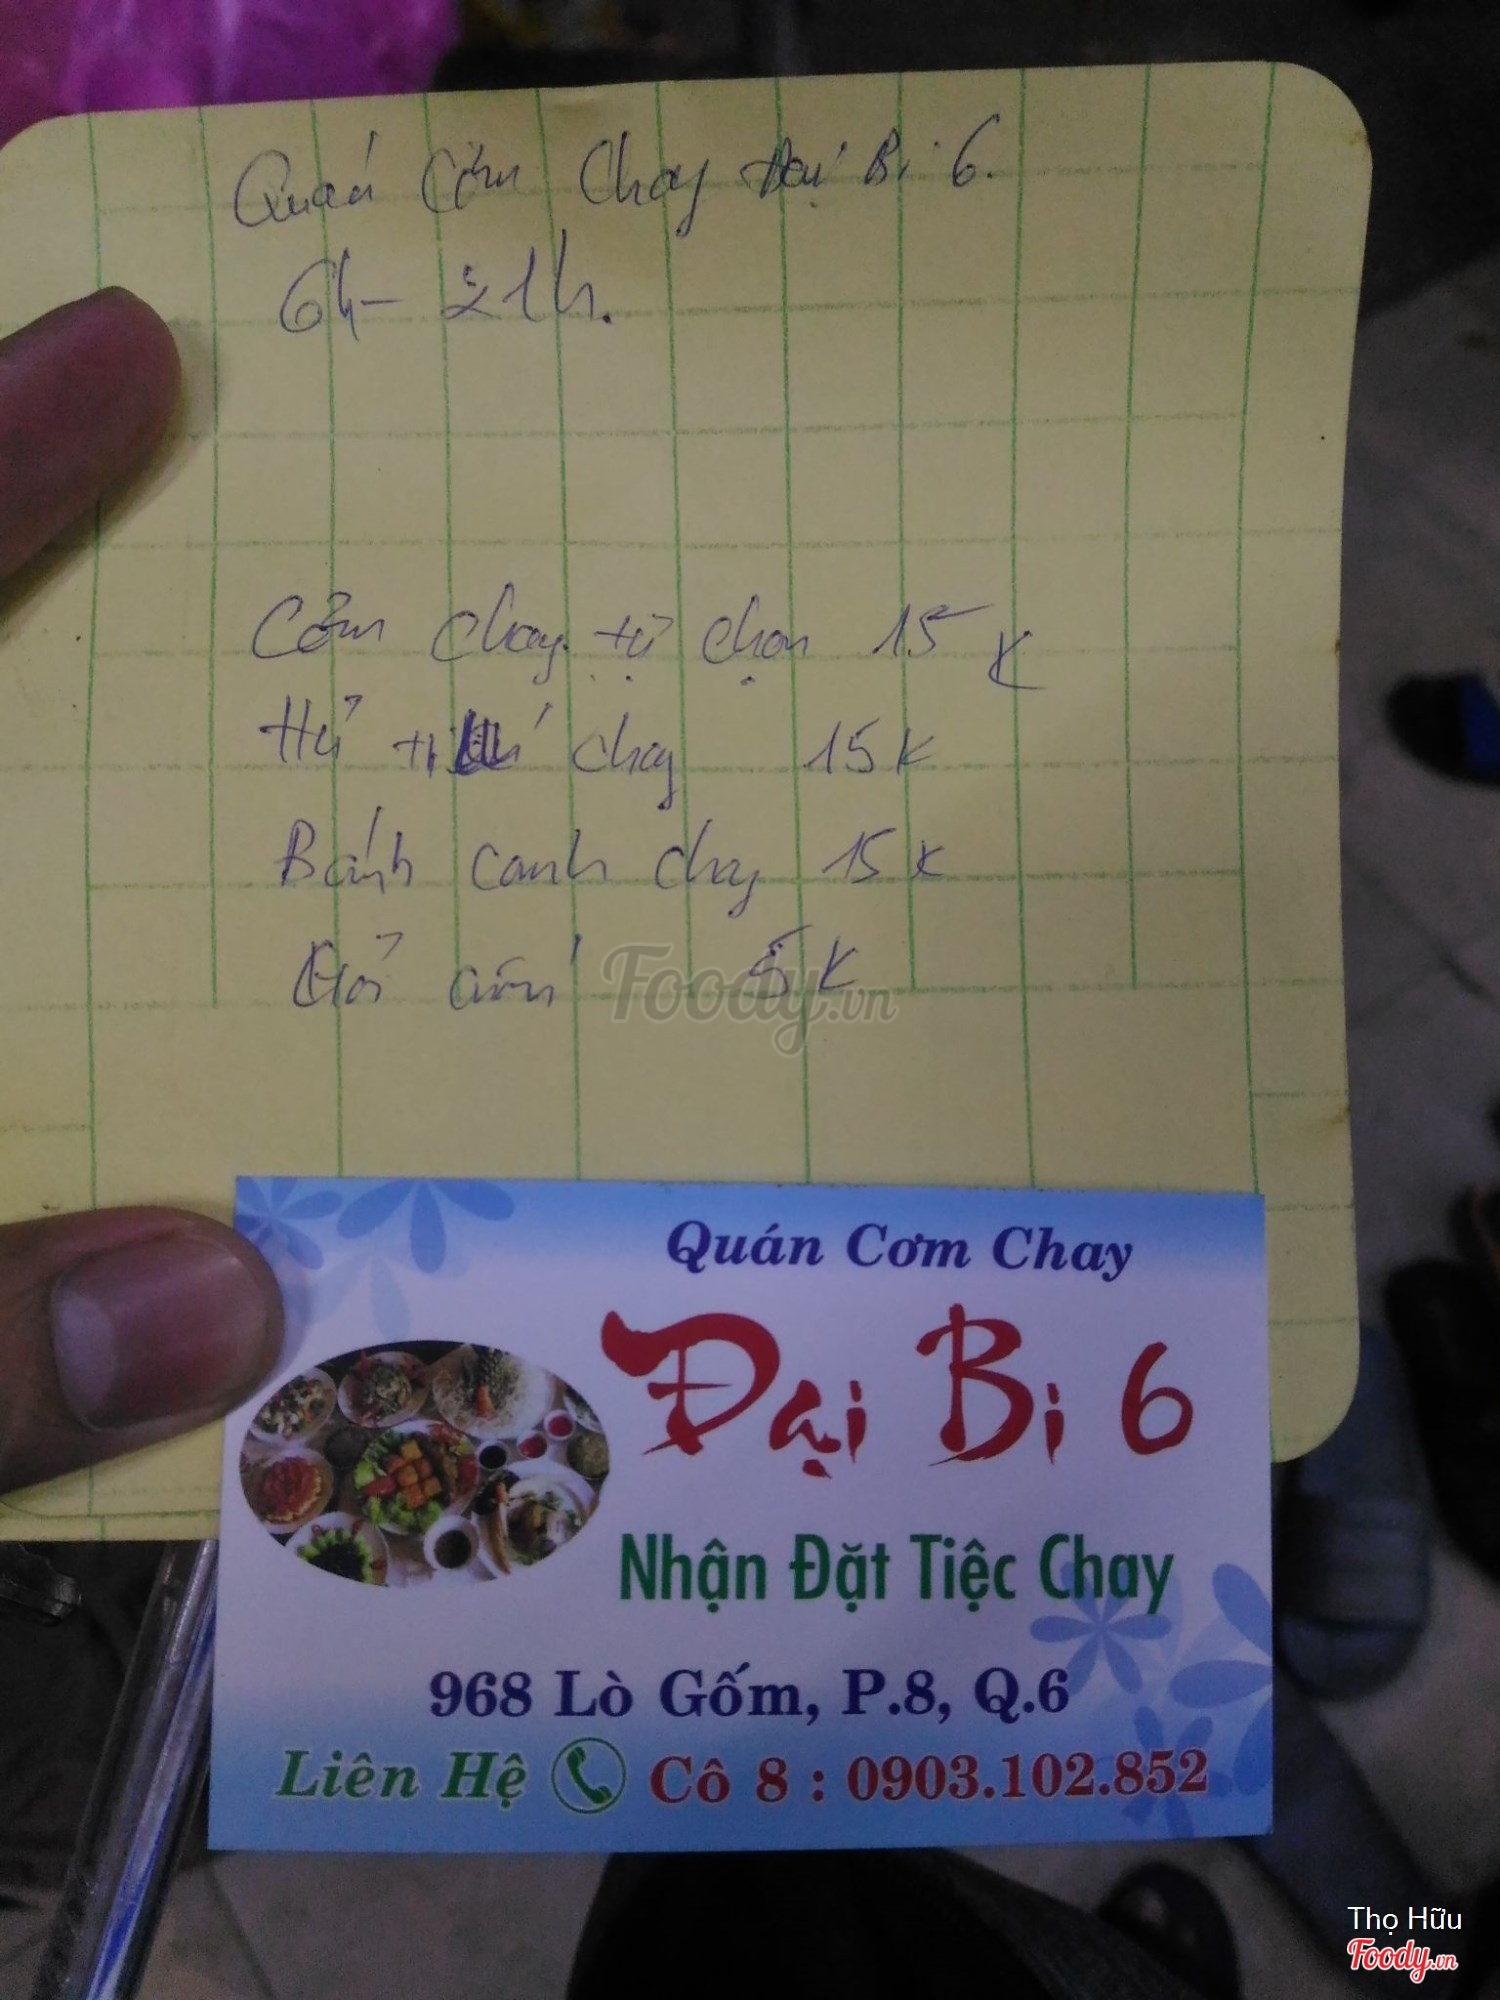 Quán Cơm Chay Đại Bi 6.
6h - 21h.
Cơm chay tự chọn 15K
Hủ tiếu chay 15K
Bánh canh chay 15K
Gỏi cuốn 5K
Foody.vn
Quán Cơm Chay
Đại Bi 6
Nhận Đặt Tiệc Chay
968 Lò Gốm, P.8, Q.6
Liên Hệ Cô 8 : 0903.102.852
Thọ Hữu
Foody.vn